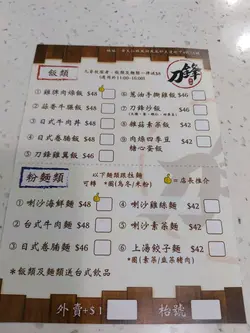 刀鋒
飯類
① 雞牌肉燥飯 $48
② 蒜香牛膳飯 $48
③ 日式牛肉丼 $48
④ 日式卷腩飯 $48
⑤ 刀鋒雞翼飯 $46
⑥ 蔥油手撕雞飯 $46
⑦ 刀鋒炒飯 $46
⑧ 雜菇素菜飯 $42
⑨ 肉燥四季豆
糖心蛋飯 $42
粉麵類
以下麵類跟拉麵
可轉 *園(烏冬/米粉)
=店長推介
① 喇沙海鮮麵 $48
② 台式牛肉麵 $48
③ 日式卷腩麵 $46
④ 喇沙雞絲麵 $42
⑤ 喇沙素菜麵 $42
⑥ 上海餃子麵 $42
*圈(素菜/韭菜豬肉)
*飯類及麵類送台式飲品
外賣+$1
枱號